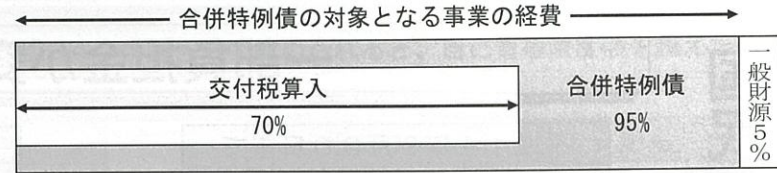 合併特例債の対象となる事業の経費
交付税算入
70%
合併特例債
95%
一般財源5%